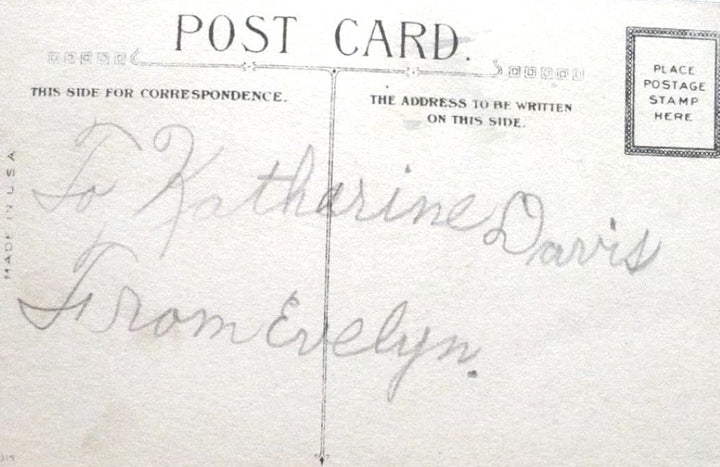 POST CARD.
THIS SIDE FOR CORRESPONDENCE.
THE ADDRESS TO BE WRITTEN
ON THIS SIDE.
PLACE
POSTAGE
STAMP
HERE
MADE IN U.S.A.
To Katharine Davis
From Evelyn.